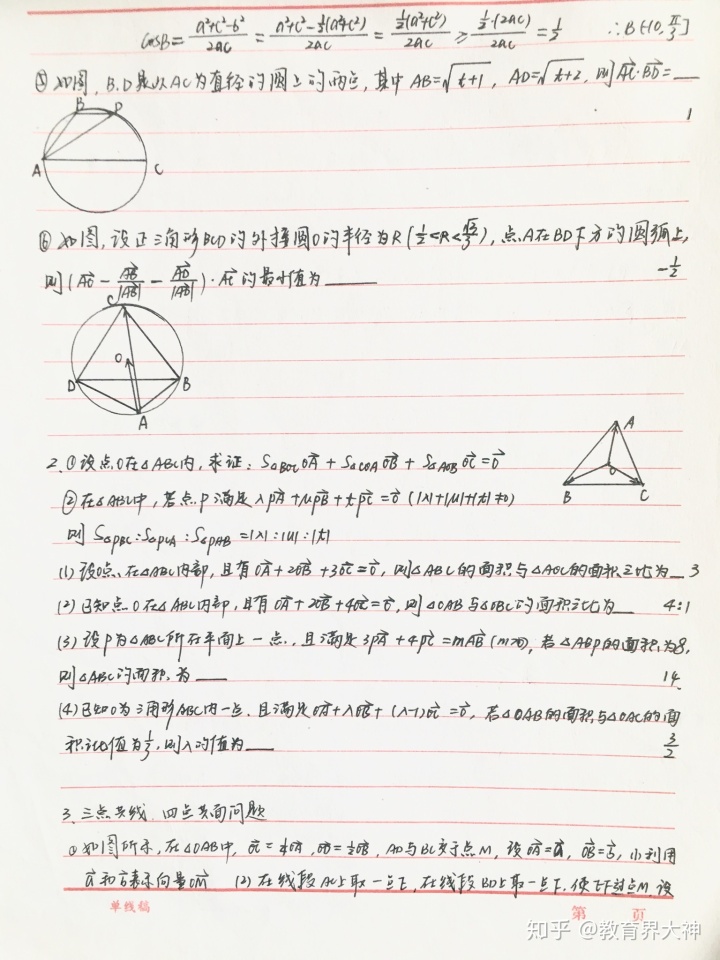 cosB = (a²+c²-b²)/2ac = (a²+c²-½(a²+c²))/2ac = ½(a²+c²)/2ac ≥ ½·(2ac)/2ac = ½ ∴B∈(0, π/3]
⑤ 如图, B.D是以AC为直径的圆上的两点, 其中 AB=√(t+1), AD=√(t+2), 则AC·BD=__
1
B D
A C
⑥ 如图, 设正三角形BCD的外接圆O的半径为R(½<R<√3/3), 点A在BD下方的圆弧上,
则(AO - AB/|AB| - AD/|AD|)·AC的最小值为____ -½
C
O
D B
A
2. ①设点O在△ABC内, 求证: S△BOC OA + S△COA OB + S△AOB OC = 0
A
O
B C
②在△ABC中, 若点P满足 λPA+μPB+tPC=0 (|λ|+|μ|+|t|≠0)
则 S△PBC:S△PCA:S△PAB=|λ|:|μ|:|t|
(1) 设O点在△ABC内部, 且有OA+2OB+3OC=0, 则△ABC的面积与△AOC的面积之比为__3
(2) 已知点O在△ABC内部, 且有OA+2OB+4OC=0, 则△OAB与△OBC的面积之比为__ 4:1
(3) 设P为△ABC所在平面上一点, 且满足3PA+4PC=mAB(m>0), 若△ABP的面积为8,
则△ABC的面积为___ 14
(4) 已知O为三角形ABC内一点, 且满足OA+λOB+(λ-1)OC=0, 若△OAB的面积与△OAC的面
积之比值为⅓, 则λ的值为___ 3/2
3. 三点共线、四点共面问题
① 如图所示, 在△OAB中, OC=¼OA, OD=½OB, AD与BC交于点M, 设OA=a, OB=b, (1) 利用
a和b表示向量OM (2) 在线段AC上取一点E, 在线段BD上取一点F, 使EF过点M, 设
单线稿 第 页
知乎 @教育界大神